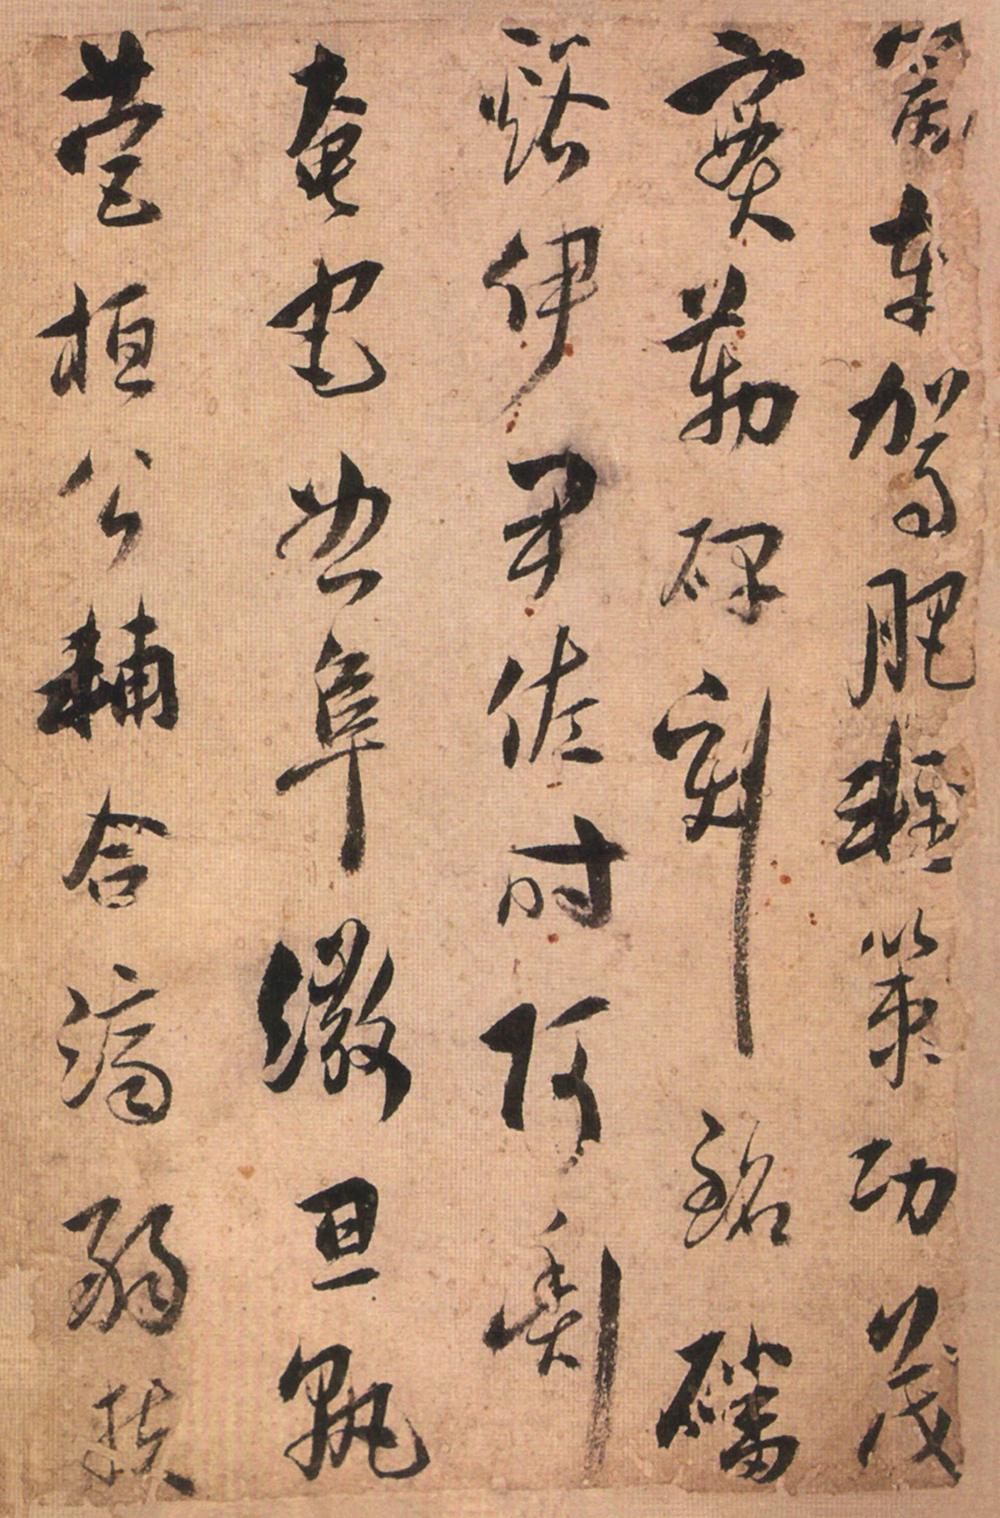 車駕肥輕策功茂
實勒碑刻銘磻
谿伊尹佐時阿衡
奄宅曲阜微旦孰
營桓公輔合濟弱扶